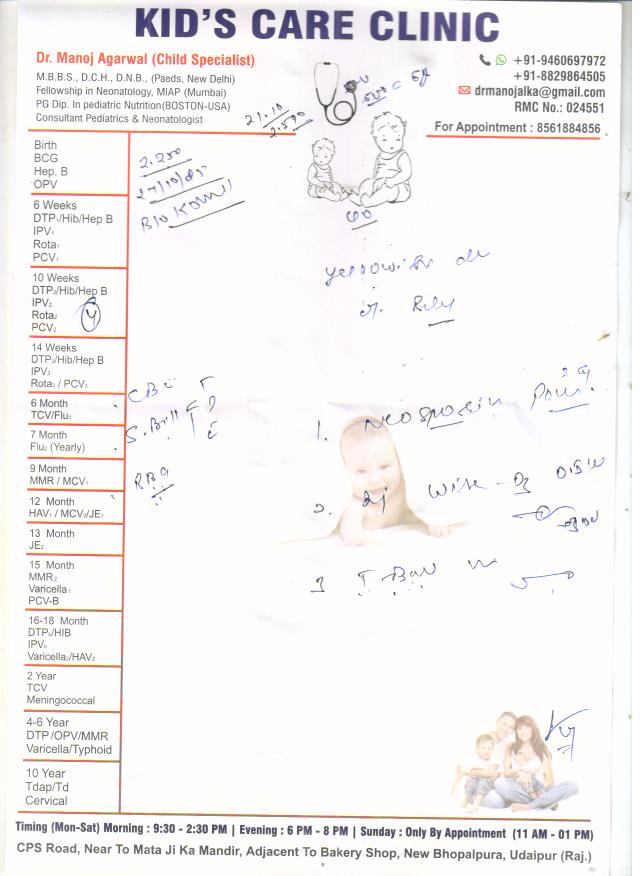 KID'S CARE CLINIC
Dr. Manoj Agarwal (Child Specialist)
M.B.B.S., D.C.H., D.N.B., (Paeds, New Delhi)
Fellowship in Neonatology, MIAP (Mumbai)
PG Dip. In pediatric Nutrition(BOSTON-USA)
Consultant Pediatrics & Neonatologist
+91-9460697972
+91-8829864505
drmanojalka@gmail.com
RMC No.: 024551
For Appointment : 8561884856
21.10
2.590
Birth
BCG
Hep. B
OPV
2.250
6 Weeks
DTP₁/Hib/Hep B
IPV₁
Rota₁
PCV₁
10 Weeks
DTP₂/Hib/Hep B
IPV₂
Rota₂
PCV₂
14 Weeks
DTP₃/Hib/Hep B
IPV₃
Rota₃ / PCV₃
6 Month
TCV/Flu₁
7 Month
Flu₂ (Yearly)
9 Month
MMR / MCV₁
12 Month
HAV₁ / MCV₂/JE₁
13 Month
JE₂
15 Month
MMR₂
Varicella₁
PCV-B
16-18 Month
DTP₄/HIB
Varicella₂/HAV₂
2 Year
TCV
Meningococcal
4-6 Year
DTP/OPV/MMR
Varicella/Typhoid
10 Year
Tdap/Td
Cervical
CBC
S. Bill
T
D
RBG
1. Neosporin
2.
3
Timing (Mon-Sat) Morning : 9:30 - 2:30 PM | Evening : 6 PM - 8 PM | Sunday : Only By Appointment (11 AM - 01 PM)
CPS Road, Near To Mata Ji Ka Mandir, Adjacent To Bakery Shop, New Bhopalpura, Udaipur (Raj.)